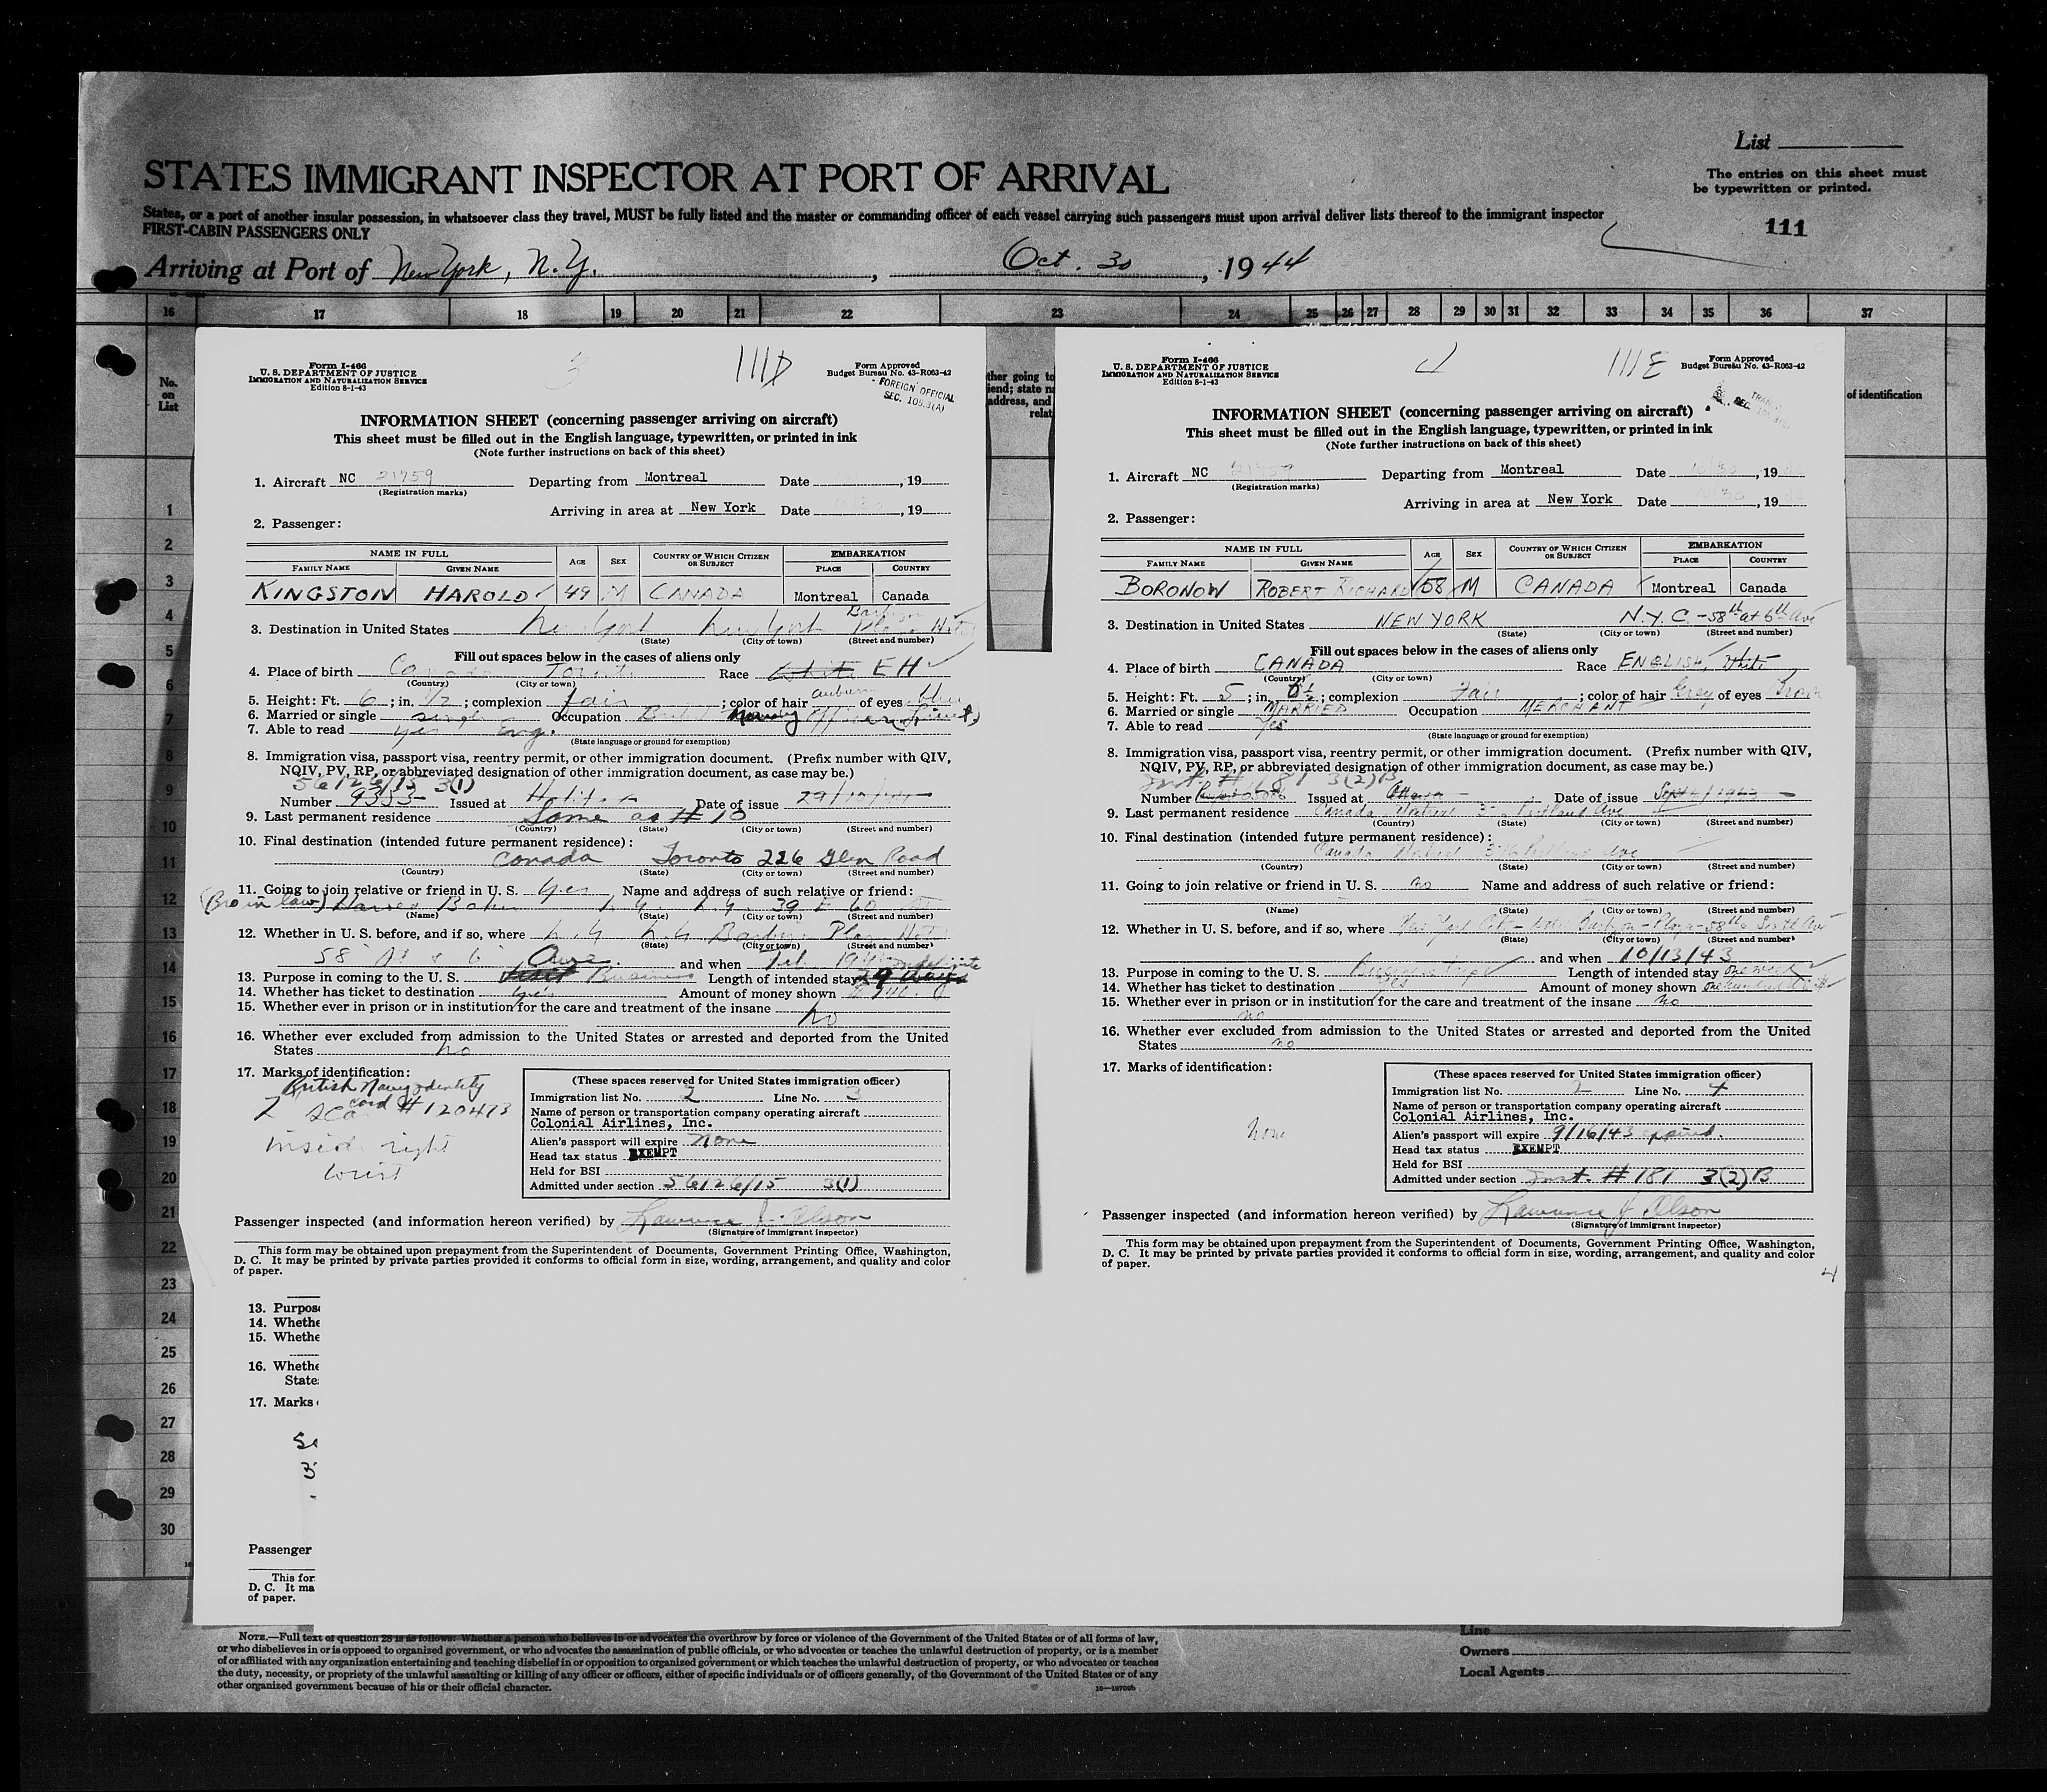 List
STATES IMMIGRANT INSPECTOR AT PORT OF ARRIVAL
The entries on this sheet must
be typewritten or printed.
States, or a port of another insular possession, in whatsoever class they travel, MUST be fully listed and the master or commanding officer of each vessel carrying such passengers must upon arrival deliver lists thereof to the immigrant inspector
FIRST-CABIN PASSENGERS ONLY
111
Arriving at Port of New York, N.Y. , Oct. 30 , 1944
16 17 18 19 20 21 22 23 24 25 26 27 28 29 30 31 32 33 34 35 36 37
No.
on
List
ther going to
iend; state n
address, and
relat
of identification
1
2
3
4
5
6
7
8
9
10
11
12
13
14
15
16
17
18
19
20
21
22
23
24
25
26
27
28
29
30
Form I-466
U. S. DEPARTMENT OF JUSTICE
IMMIGRATION AND NATURALIZATION SERVICE
Edition 8-1-43
3
111D
Form Approved
Budget Bureau No. 43-R063-42
FOREIGN OFFICIAL
SEC. 105.3(A)
INFORMATION SHEET (concerning passenger arriving on aircraft)
This sheet must be filled out in the English language, typewritten, or printed in ink
(Note further instructions on back of this sheet)
1. Aircraft NC 21759 Departing from Montreal Date , 19
(Registration marks)
Arriving in area at New York Date , 19
2. Passenger:
NAME IN FULL AGE SEX COUNTRY OF WHICH CITIZEN OR SUBJECT EMBARKATION
FAMILY NAME GIVEN NAME PLACE COUNTRY
KINGSTON HAROLD 49 M CANADA Montreal Canada
3. Destination in United States New York New York Barbizon Plaza Hotel
(State) (City or town) (Street and number)
Fill out spaces below in the cases of aliens only
4. Place of birth Canada Toronto Race White EH
(Country) (City or town)
5. Height: Ft. 6 ; in. 1/2 ; complexion fair ; color of hair auburn of eyes blue
6. Married or single single Occupation Navy Officer
7. Able to read yes Eng.
(State language or ground for exemption)
8. Immigration visa, passport visa, reentry permit, or other immigration document. (Prefix number with QIV,
NQIV, PV, RP, or abbreviated designation of other immigration document, as case may be.)
56126/15 3(1)
Number 9353 Issued at Halifax Date of issue 29/10/44
9. Last permanent residence Same as # 10
(Country) (State) (City or town) (Street and number)
10. Final destination (intended future permanent residence):
Canada Toronto 226 Glen Road
(Country) (State) (City or town) (Street and number)
11. Going to join relative or friend in U. S. Yes Name and address of such relative or friend:
(Bro in law) N.Y. N.Y. 39 E 60
(Name) (State) (City or town) (Street and number)
12. Whether in U. S. before, and if so, where N.Y. N.Y. Barbizon Plaza Hotel
(State) (City or town) (Street and number)
58 Ave. and when
13. Purpose in coming to the U. S. Business Length of intended stay 29 days indefinite
14. Whether has ticket to destination yes Amount of money shown
15. Whether ever in prison or in institution for the care and treatment of the insane no
16. Whether ever excluded from admission to the United States or arrested and deported from the United
States no
17. Marks of identification:
British Navy identity
card # 120473
inside right
wrist
(These spaces reserved for United States immigration officer)
Immigration list No. 2 Line No. 3
Name of person or transportation company operating aircraft
Colonial Airlines, Inc.
Alien's passport will expire none
Head tax status EXEMPT
Held for BSI
Admitted under section 56126/15 3(1)
Passenger inspected (and information hereon verified) by Lawrence J. Olson
(Signature of Immigrant Inspector)
This form may be obtained upon prepayment from the Superintendent of Documents, Government Printing Office, Washington,
D. C. It may be printed by private parties provided it conforms to official form in size, wording, arrangement, and quality and color
of paper.
13. Purpose
14. Whethe
15. Whethe
16. Whethe
State
17. Marks
Passenger
This for
D. C. It ma
of paper.
Form I-466
U. S. DEPARTMENT OF JUSTICE
IMMIGRATION AND NATURALIZATION SERVICE
Edition 8-1-43
111E
Form Approved
Budget Bureau No. 43-R063-42
INFORMATION SHEET (concerning passenger arriving on aircraft)
This sheet must be filled out in the English language, typewritten, or printed in ink
(Note further instructions on back of this sheet)
1. Aircraft NC 21759 Departing from Montreal Date 10/30 , 19
(Registration marks)
Arriving in area at New York Date 10/30 , 19
2. Passenger:
NAME IN FULL AGE SEX COUNTRY OF WHICH CITIZEN OR SUBJECT EMBARKATION
FAMILY NAME GIVEN NAME PLACE COUNTRY
BORONOW ROBERT RICHARD 58 M CANADA Montreal Canada
3. Destination in United States NEW YORK N.Y.C. - 58th at 6th Ave
(State) (City or town) (Street and number)
Fill out spaces below in the cases of aliens only
4. Place of birth CANADA Race ENGLISH, White
(Country) (City or town)
5. Height: Ft. 5 ; in. 6½ ; complexion Fair ; color of hair Grey of eyes Brown
6. Married or single MARRIED Occupation MERCHANT
7. Able to read Yes
(State language or ground for exemption)
8. Immigration visa, passport visa, reentry permit, or other immigration document. (Prefix number with QIV,
NQIV, PV, RP, or abbreviated designation of other immigration document, as case may be.)
Inst. # 181 3(2)B
Number Issued at Ottawa Date of issue Sept 16/1943
9. Last permanent residence Canada Montreal Portland Ave
(Country) (State) (City or town) (Street and number)
10. Final destination (intended future permanent residence):
Canada Montreal Portland Ave
(Country) (State) (City or town) (Street and number)
11. Going to join relative or friend in U. S. no Name and address of such relative or friend:
(Name) (State) (City or town) (Street and number)
12. Whether in U. S. before, and if so, where New York City - Hotel Barbizon-Plaza-58th Sixth Ave
(State) (City or town) (Street and number)
and when 10/13/43
13. Purpose in coming to the U. S. Business trip Length of intended stay one week
14. Whether has ticket to destination Yes Amount of money shown one hundred
15. Whether ever in prison or in institution for the care and treatment of the insane no
no
16. Whether ever excluded from admission to the United States or arrested and deported from the United
States no
17. Marks of identification:
None
(These spaces reserved for United States immigration officer)
Immigration list No. 2 Line No. 4
Name of person or transportation company operating aircraft
Colonial Airlines, Inc.
Alien's passport will expire 9/16/43 expired.
Head tax status EXEMPT
Held for BSI
Admitted under section Inst. # 181 3(2)B
Passenger inspected (and information hereon verified) by Lawrence J. Olson
(Signature of Immigrant Inspector)
This form may be obtained upon prepayment from the Superintendent of Documents, Government Printing Office, Washington,
D. C. It may be printed by private parties provided it conforms to official form in size, wording, arrangement, and quality and color
of paper.
4
NOTE.—Full text of question 28 is as follows: Whether a person who believes in or advocates the overthrow by force or violence of the Government of the United States or of all forms of law,
or who disbelieves in or is opposed to organized government, or who advocates the assassination of public officials, or who advocates or teaches the unlawful destruction of property, or is a member
of or affiliated with any organization entertaining and teaching disbelief in or opposition to organized government or which teaches the unlawful destruction of property, or who advocates or teaches
the duty, necessity, or propriety of the unlawful assaulting or killing of any officer or officers, either of specific individuals or of officers generally, of the Government of the United States or of any
other organized government because of his or their official character.
Line
Owners
Local Agents